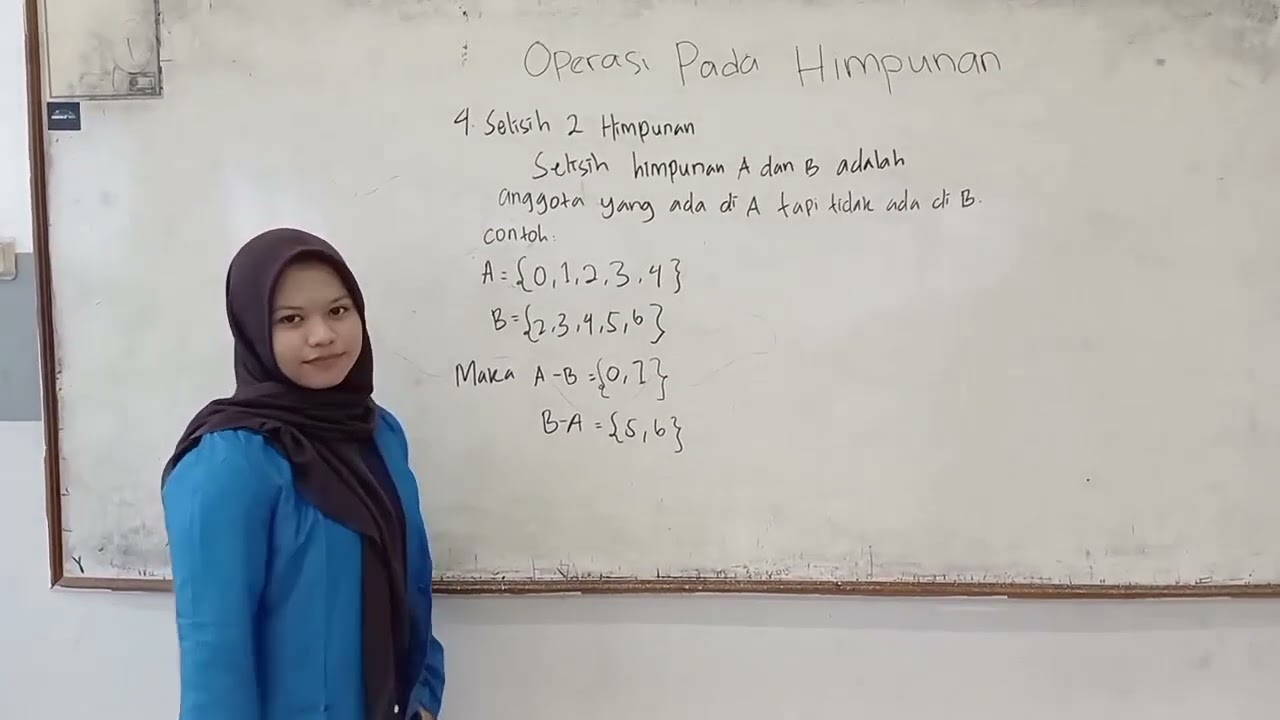 Operasi Pada Himpunan
4. Selisih 2 Himpunan
Selisih himpunan A dan B adalah
anggota yang ada di A tapi tidak ada di B.
contoh:
A = {0, 1, 2, 3, 4}
B = {2, 3, 4, 5, 6}
Maka A - B = {0, 1}
B - A = {5, 6}